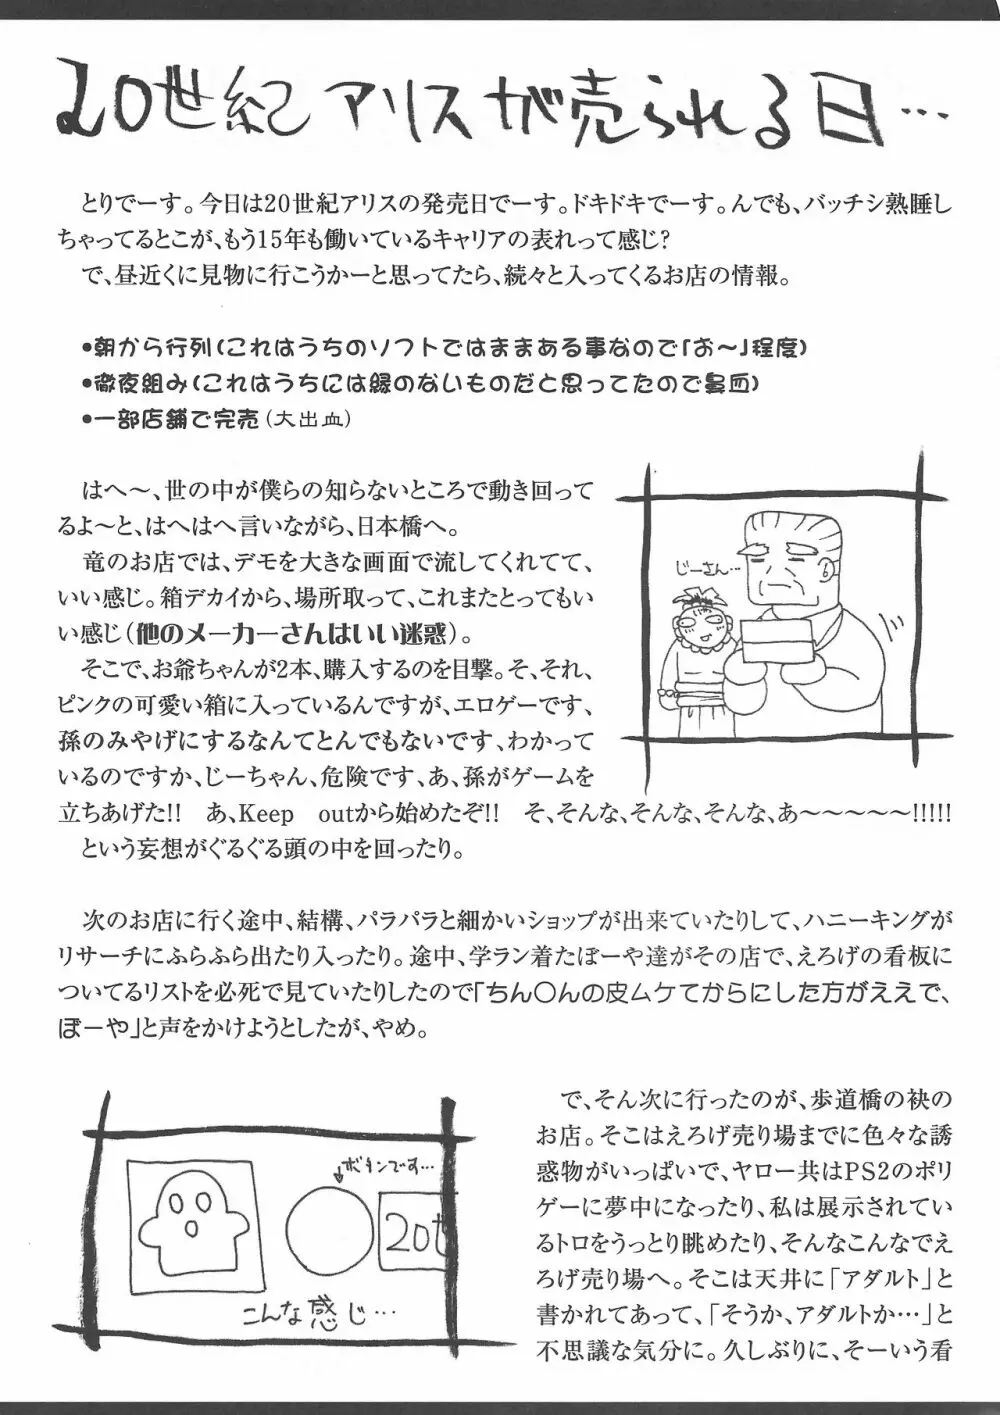 20世紀アリスが売られる日…
とりでーす。今日は20世紀アリスの発売日でーす。ドキドキでーす。んでも、バッチシ熟睡し
ちゃってるとこが、もう15年も働いているキャリアの表れって感じ?
で、昼近くに見物に行こうかーと思ってたら、続々と入ってくるお店の情報。
●朝から行列(これはうちのソフトではままある事なので「お〜」程度)
●徹夜組み(これはうちには縁のないものだと思ってたので鼻血)
●一部店舗で完売(大出血)
はへ〜、世の中が僕らの知らないところで動き回って
るよ〜と、はへはへ言いながら、日本橋へ。
竜のお店では、デモを大きな画面で流してくれてて、
いい感じ。箱デカイから、場所取って、これまたとってもい
い感じ(他のメーカーさんはいい迷惑)。
そこで、お爺ちゃんが2本、購入するのを目撃。そ、それ、
ピンクの可愛い箱に入っているんですが、エロゲーです、
孫のみやげにするなんてとんでもないです、わかって
いるのですか、じーちゃん、危険です、あ、孫がゲームを
立ちあげた!! あ、Keep outから始めたぞ!! そ、そんな、そんな、そんな、あ〜〜〜〜〜!!!!!
という妄想がぐるぐる頭の中を回ったり。
じーさん…
次のお店に行く途中、結構、パラパラと細かいショップが出来ていたりして、ハニーキングが
リサーチにふらふら出たり入ったり。途中、学ラン着たぼーや達がその店で、えろげの看板に
ついてるリストを必死で見ていたりしたので「ちん○んの皮ムケてからにした方がええで、
ぼーや」と声をかけようとしたが、やめ。
ボタンです…
20t
こんな感じ…
で、そん次に行ったのが、歩道橋の袂の
お店。そこはえろげ売り場までに色々な誘
惑物がいっぱいで、ヤロー共はPS2のポリ
ゲーに夢中になったり、私は展示されてい
るトロをうっとり眺めたり、そんなこんなでえ
ろげ売り場へ。そこは天井に「アダルト」と
書かれてあって、「そうか、アダルトか…」と
不思議な気分に。久しぶりに、そーいう看